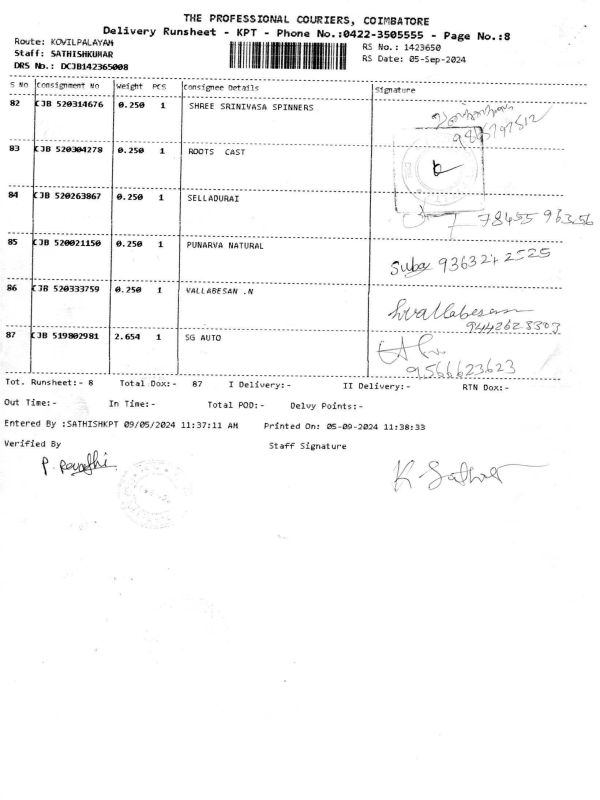 THE PROFESSIONAL COURIERS, COIMBATORE
Delivery Runsheet - KPT - Phone No.:0422-3505555 - Page No.:8
Route: KOVILPALAYAM RS No.: 1423650
Staff: SATHISHKUMAR RS Date: 05-Sep-2024
DRS No.: DCJB142365008
S No Consignment No Weight PCS Consignee Details Signature
82 CJB 520314676 0.250 1 SHREE SRINIVASA SPINNERS
83 CJB 520304278 0.250 1 ROOTS CAST
84 CJB 520263867 0.250 1 SELLADURAI
78455 96356
85 CJB 520021150 0.250 1 PUNARVA NATURAL
Suba
86 CJB 520333759 0.250 1 VALLABESAN .N
hvallabesan
9442623303
87 CJB 519802981 2.654 1 SG AUTO
9566623623
Tot. Runsheet:- 8 Total Dox:- 87 I Delivery:- II Delivery:- RTN Dox:-
Out Time:- In Time:- Total POD:- Delvy Points:-
Entered By :SATHISHKPT 09/05/2024 11:37:11 AM Printed On: 05-09-2024 11:38:33
Verified By Staff Signature
P. Revathi K. Sathis